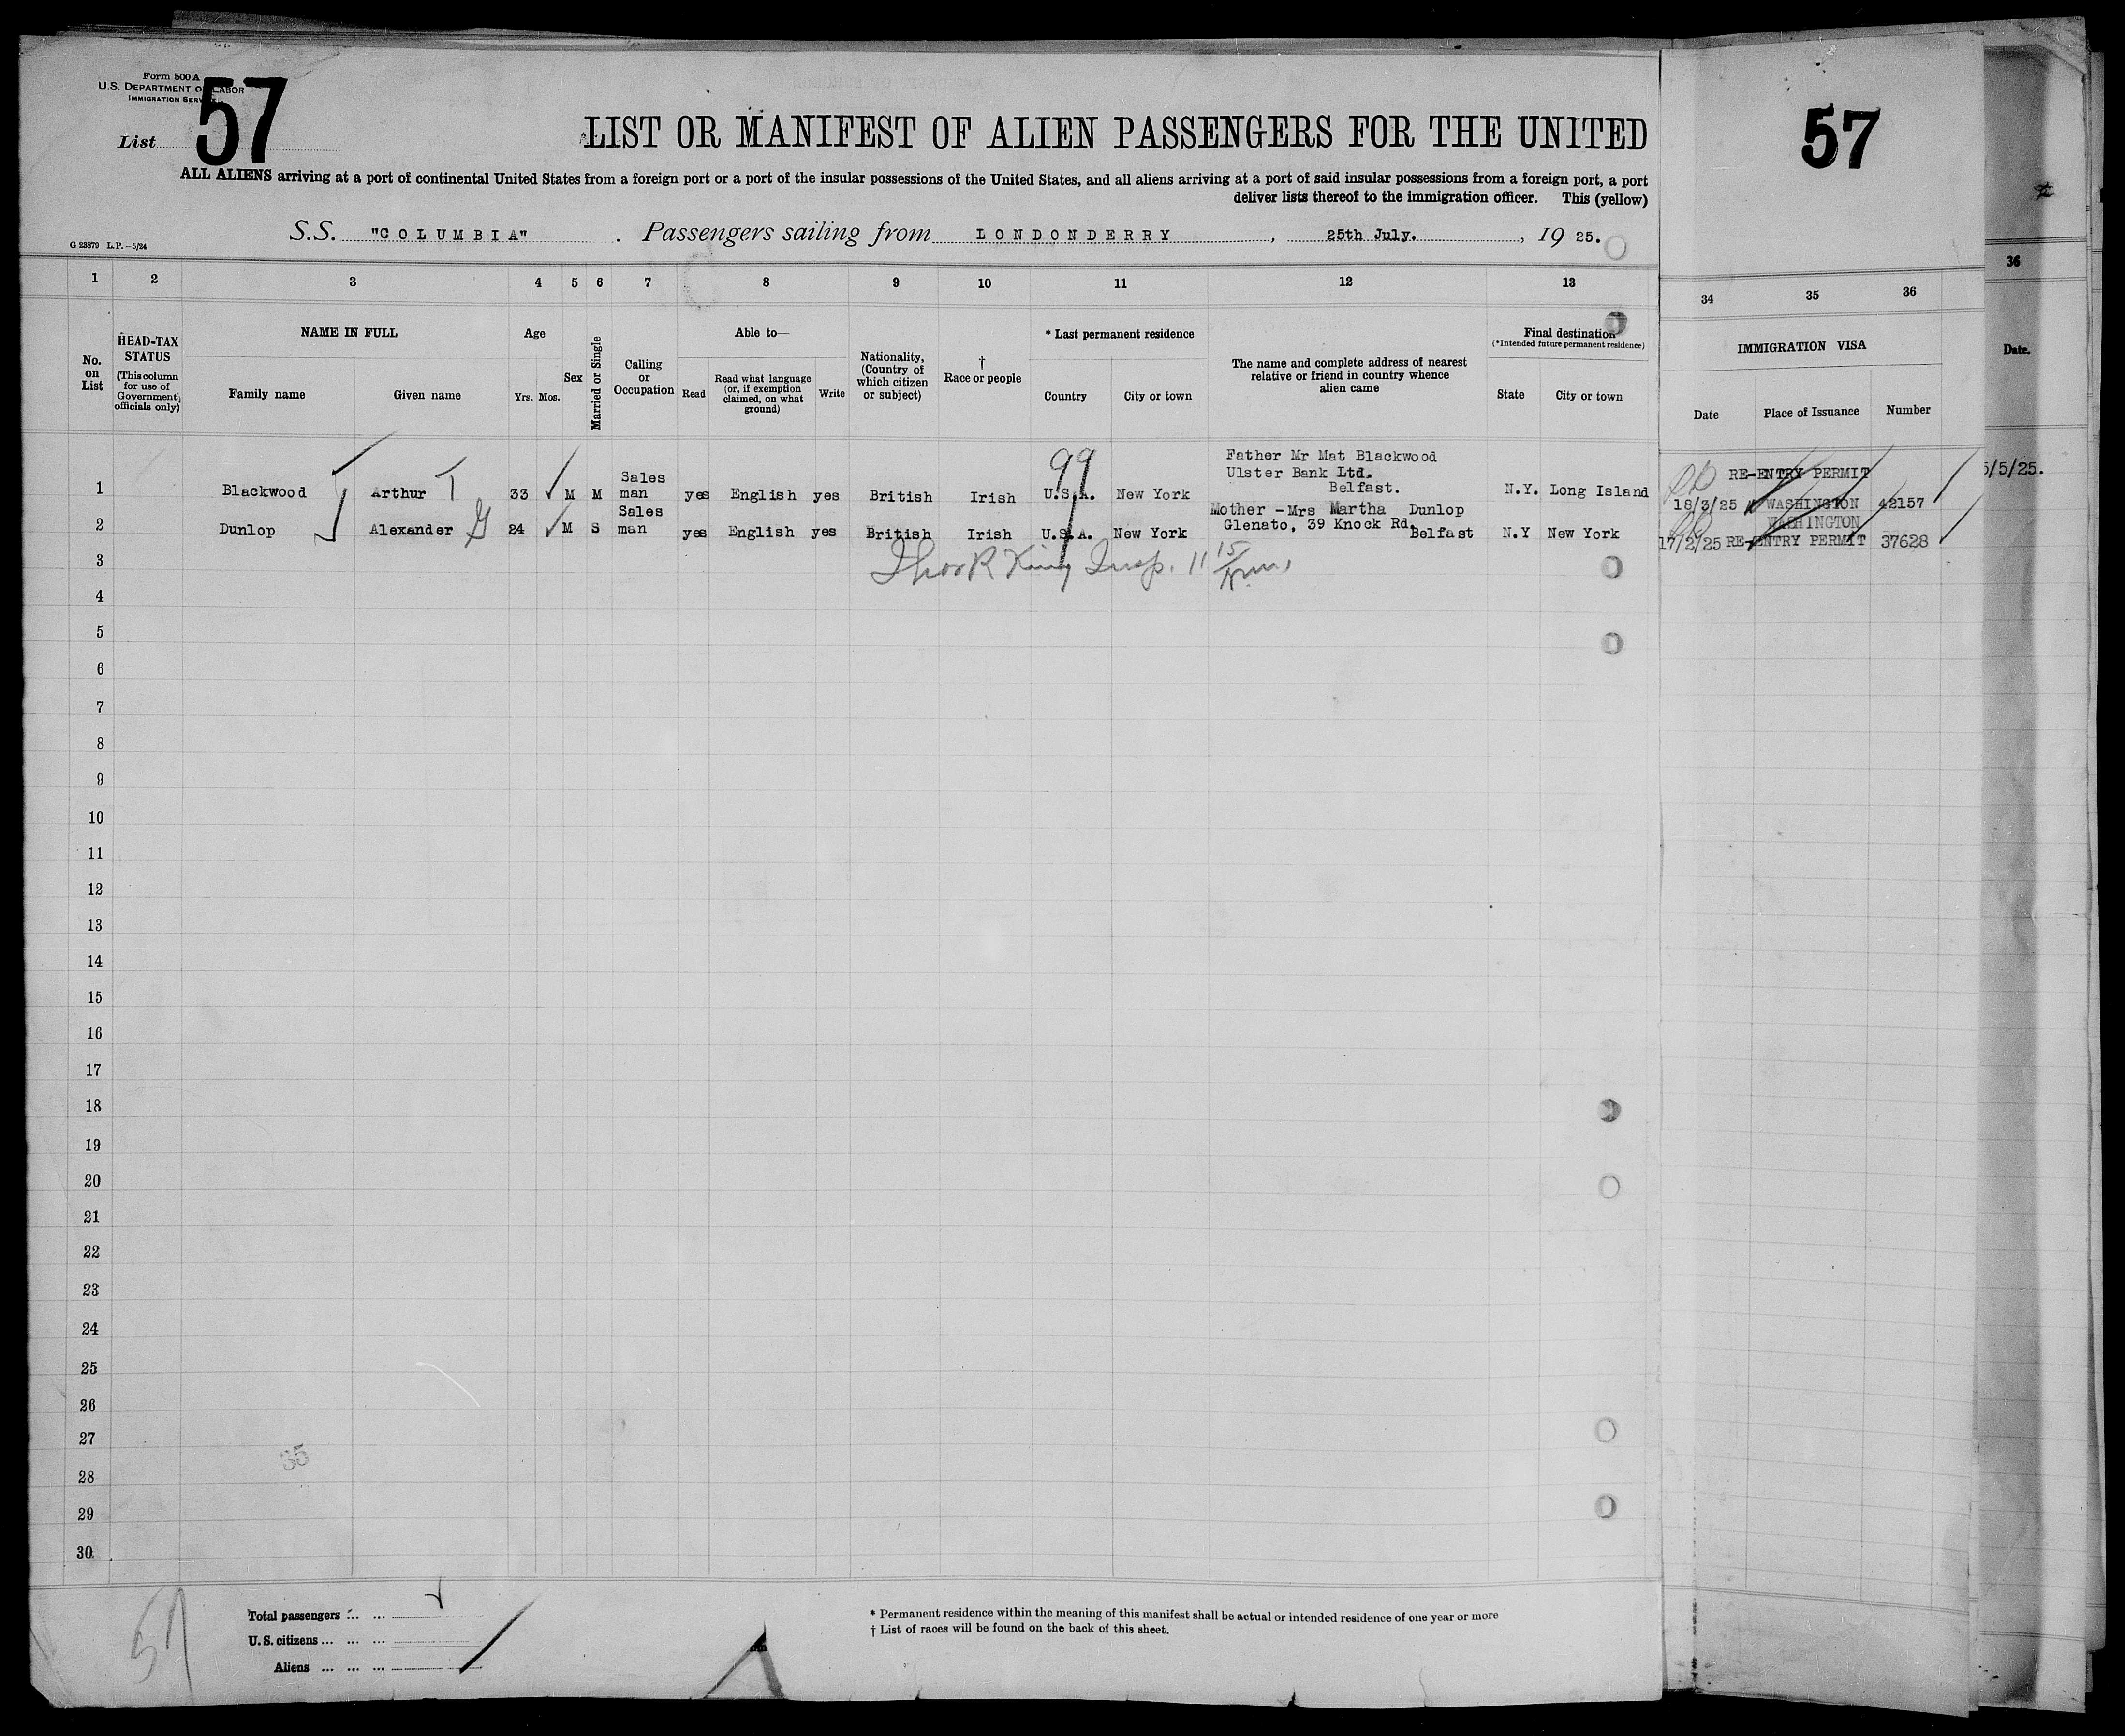 Form 500 A
U.S. DEPARTMENT OF LABOR
IMMIGRATION SERVICE
List 57
LIST OR MANIFEST OF ALIEN PASSENGERS FOR THE UNITED
ALL ALIENS arriving at a port of continental United States from a foreign port or a port of the insular possessions of the United States, and all aliens arriving at a port of said insular possessions from a foreign port, a port
deliver lists thereof to the immigration officer. This (yellow)
G 23879 L.P.—5/24
S.S. "COLUMBIA" . Passengers sailing from LONDONDERRY, 25th July., 19 25.
57
1 2 3 4 5 6 7 8 9 10 11 12 13
34 35 36
36
No. on List
HEAD-TAX STATUS
(This column for use of Government officials only)
NAME IN FULL
Family name
Given name
Age
Yrs. Mos.
Sex
Married or Single
Calling or Occupation
Able to—
Read
Read what language (or, if exemption claimed, on what ground)
Write
Nationality, (Country of which citizen or subject)
† Race or people
* Last permanent residence
Country
City or town
The name and complete address of nearest relative or friend in country whence alien came
Final destination
(*Intended future permanent residence)
State
City or town
IMMIGRATION VISA
Date
Place of Issuance
Number
Date.
99
1 Blackwood Arthur T 33 M M Sales man yes English yes British Irish U.S.A. New York Father Mr Mat Blackwood Ulster Bank Ltd. Belfast. N.Y. Long Island RE-ENTRY PERMIT 18/3/25 WASHINGTON 42157
5/5/25.
2 Dunlop Alexander G 24 M S Sales man yes English yes British Irish U.S.A. New York Mother -Mrs Martha Dunlop Glenato, 39 Knock Rd. Belfast N.Y New York WASHINGTON 17/2/25 RE-ENTRY PERMIT 37628
3 Thos R King Insp. 11 15
4
5
6
7
8
9
10
11
12
13
14
15
16
17
18
19
20
21
22
23
24
25
26
27
35
28
29
30
57
Total passengers ... ...
U.S. citizens ... ... ...
Aliens ... ... ...
* Permanent residence within the meaning of this manifest shall be actual or intended residence of one year or more
† List of races will be found on the back of this sheet.